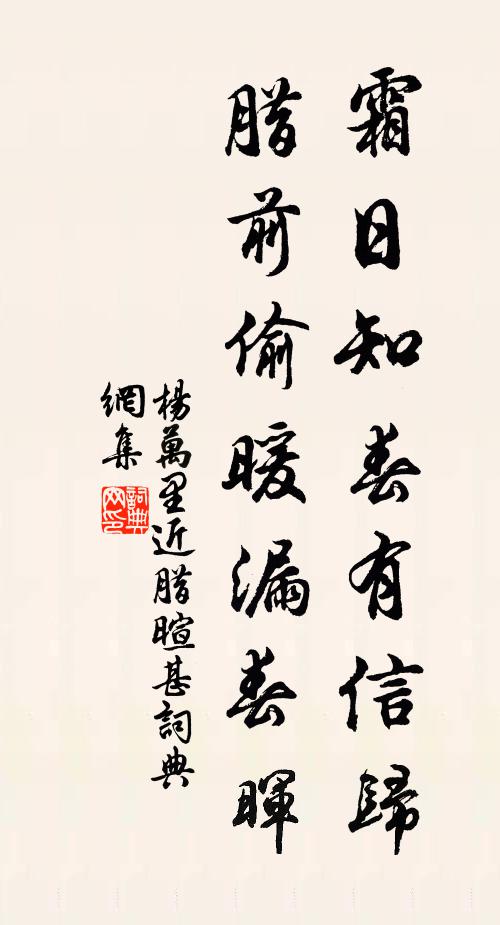 霜日知春有信歸
腊前偷暖漏春暉
楊萬里近腊暄甚詞典
網集
詞典
网印